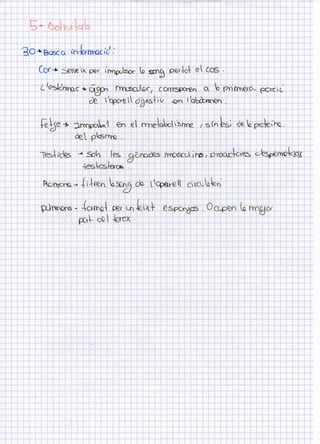 5- Activitats
30 • Busca informació:
Cor → Serveix per impulsar la sang per tot el cos.
L'estómac • òrgan muscular, correspon a la primera porció
de l'aparell digestiu en l'abdomen.
Fetge → Important en el metabolisme, síntesi de la proteïna
del plasma.
Testicles → Són les gònades masculina, productores d'espermatozois
testosterona
Ronyons - filtren la sang de l'aparell circulatori
pulmons - format per un teixit esponjós. Ocupen la major
part del tòrax.